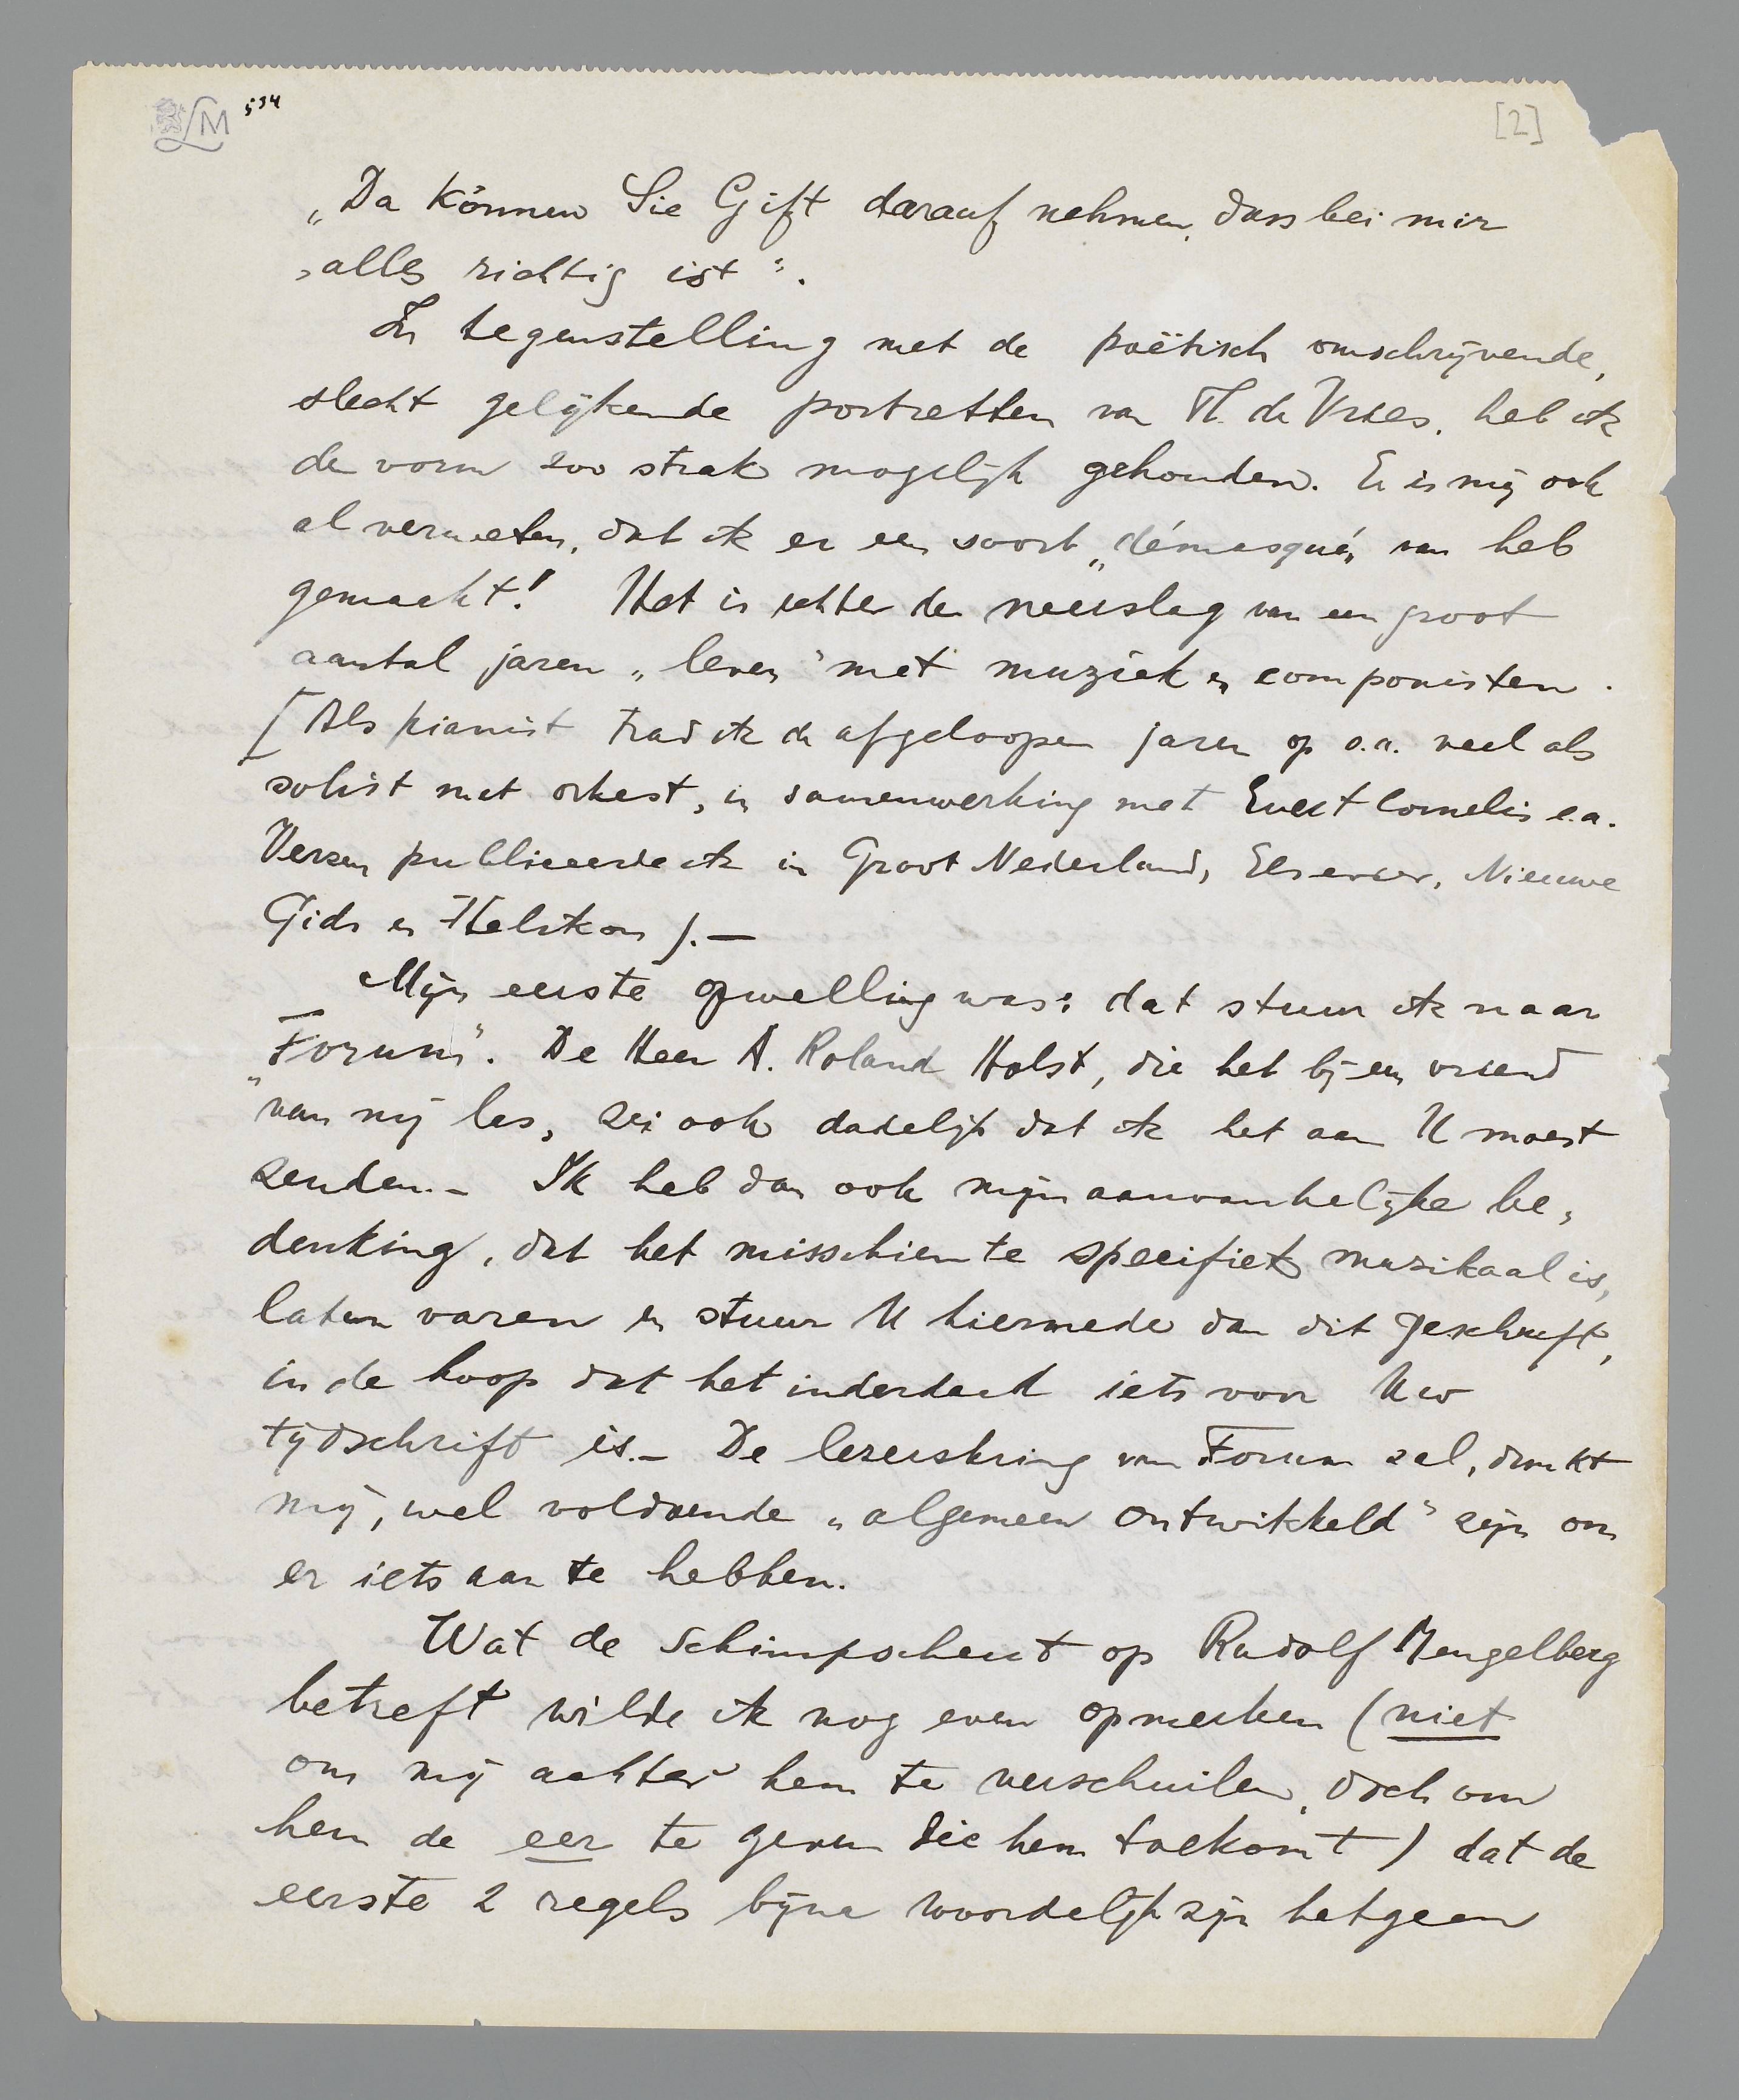 LM 534
[2]
„Da können Sie Gift darauf nehmen, dass bei mir
„alles richtig ist".
In tegenstelling met de poëtisch omschrijvende,
slecht gelijkende portretten van Th. de Vries, heb ik
de vorm zoo strak mogelijk gehouden. Er is mij ook
al verweten, dat ik er een soort „démasqué„ van heb
gemaakt! Het is echter de neerslag van een groot
aantal jaren „leven" met muziek en componisten.
[Als pianist trad ik de afgeloopen jaren op o.a. veel als
solist met orkest, in samenwerking met Evert Cornelis e.a.
Verzen publiceerde ik in Groot Nederland, Elsevier, Nieuwe
Gids en Helikon ).—
Mijn eerste opwelling was: dat stuur ik naar
„Forum". De Heer A. Roland Holst, die het bij een vriend
van mij las, zei ook dadelijk dat ik het aan U moest
zenden.- Ik heb dan ook mijn aanvankelijke be„
denking, dat het misschien te specifiek muzikaal is,
laten varen en stuur U hiermede dan dit geschrift,
in de hoop dat het inderdaad iets voor Uw
tijdschrift is.- De lezerskring van Forum zal, dunkt
mij, wel voldoende „algemeen ontwikkeld" zijn om
er iets aan te hebben.
Wat de schimpscheut op Rudolf Mengelberg
betreft wilde ik nog even opmerken (niet
om mij achter hem te verschuilen, doch om
hem de eer te geven die hem toekomt) dat de
eerste 2 regels bijna woordelijk zijn hetgeen